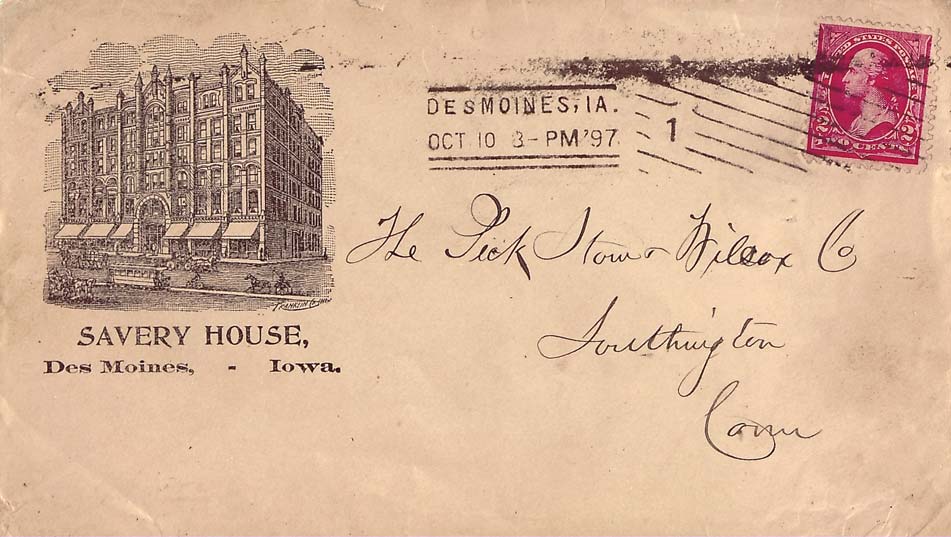 UNITED STATES POSTAGE
2 CENTS 2
DES MOINES, IA.
OCT 10 3-PM '97.
1
The Peck Stow & Wilcox Co
Southington
Conn
FRANKLIN
SAVERY HOUSE,
Des Moines, - Iowa.